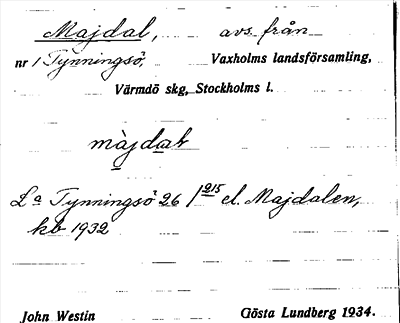 Majdal, avs. från
nr 1 Tynningsö, Vaxholms landsförsamling,
Värmdö skg, Stockholms l.
màjdal
La Tynningsö 26 1/215 el. Majdalen,
kb 1932
John Westin Gösta Lundberg 1934.